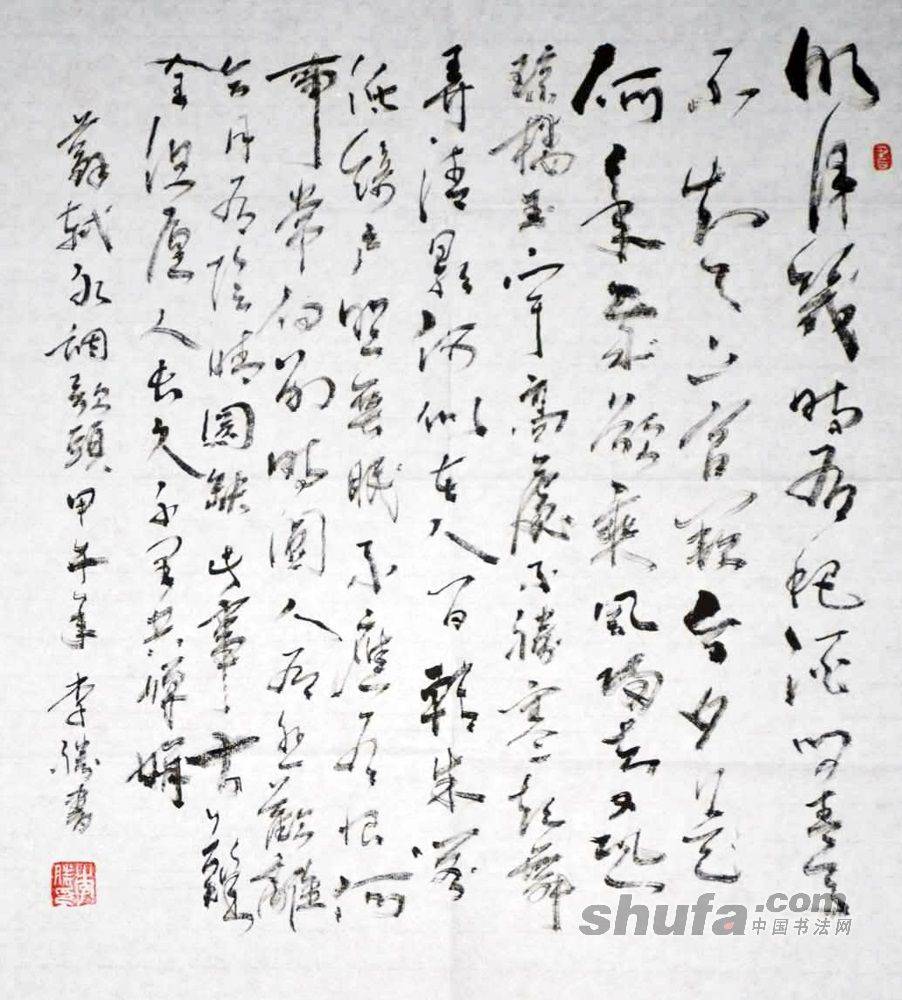 明月幾時有把酒問青天
不知天上宮闕今夕是
何年我欲乘風歸去又恐
瓊樓玉宇高處不勝寒起舞
弄清影何似在人間轉朱閣
低綺户照無眠不應有恨何
事常向别時圓人有悲歡離
合月有陰晴圓缺此事古難
全但願人長久千里共嬋娟
蘇軾水調歌頭甲午年李勝書
shufa.com
中国书法网